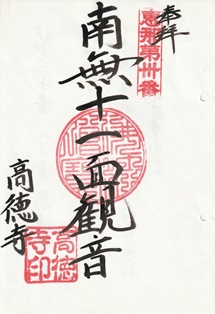 奉拝
恵那第卅番
南無十一面観音
高徳寺
高徳寺印